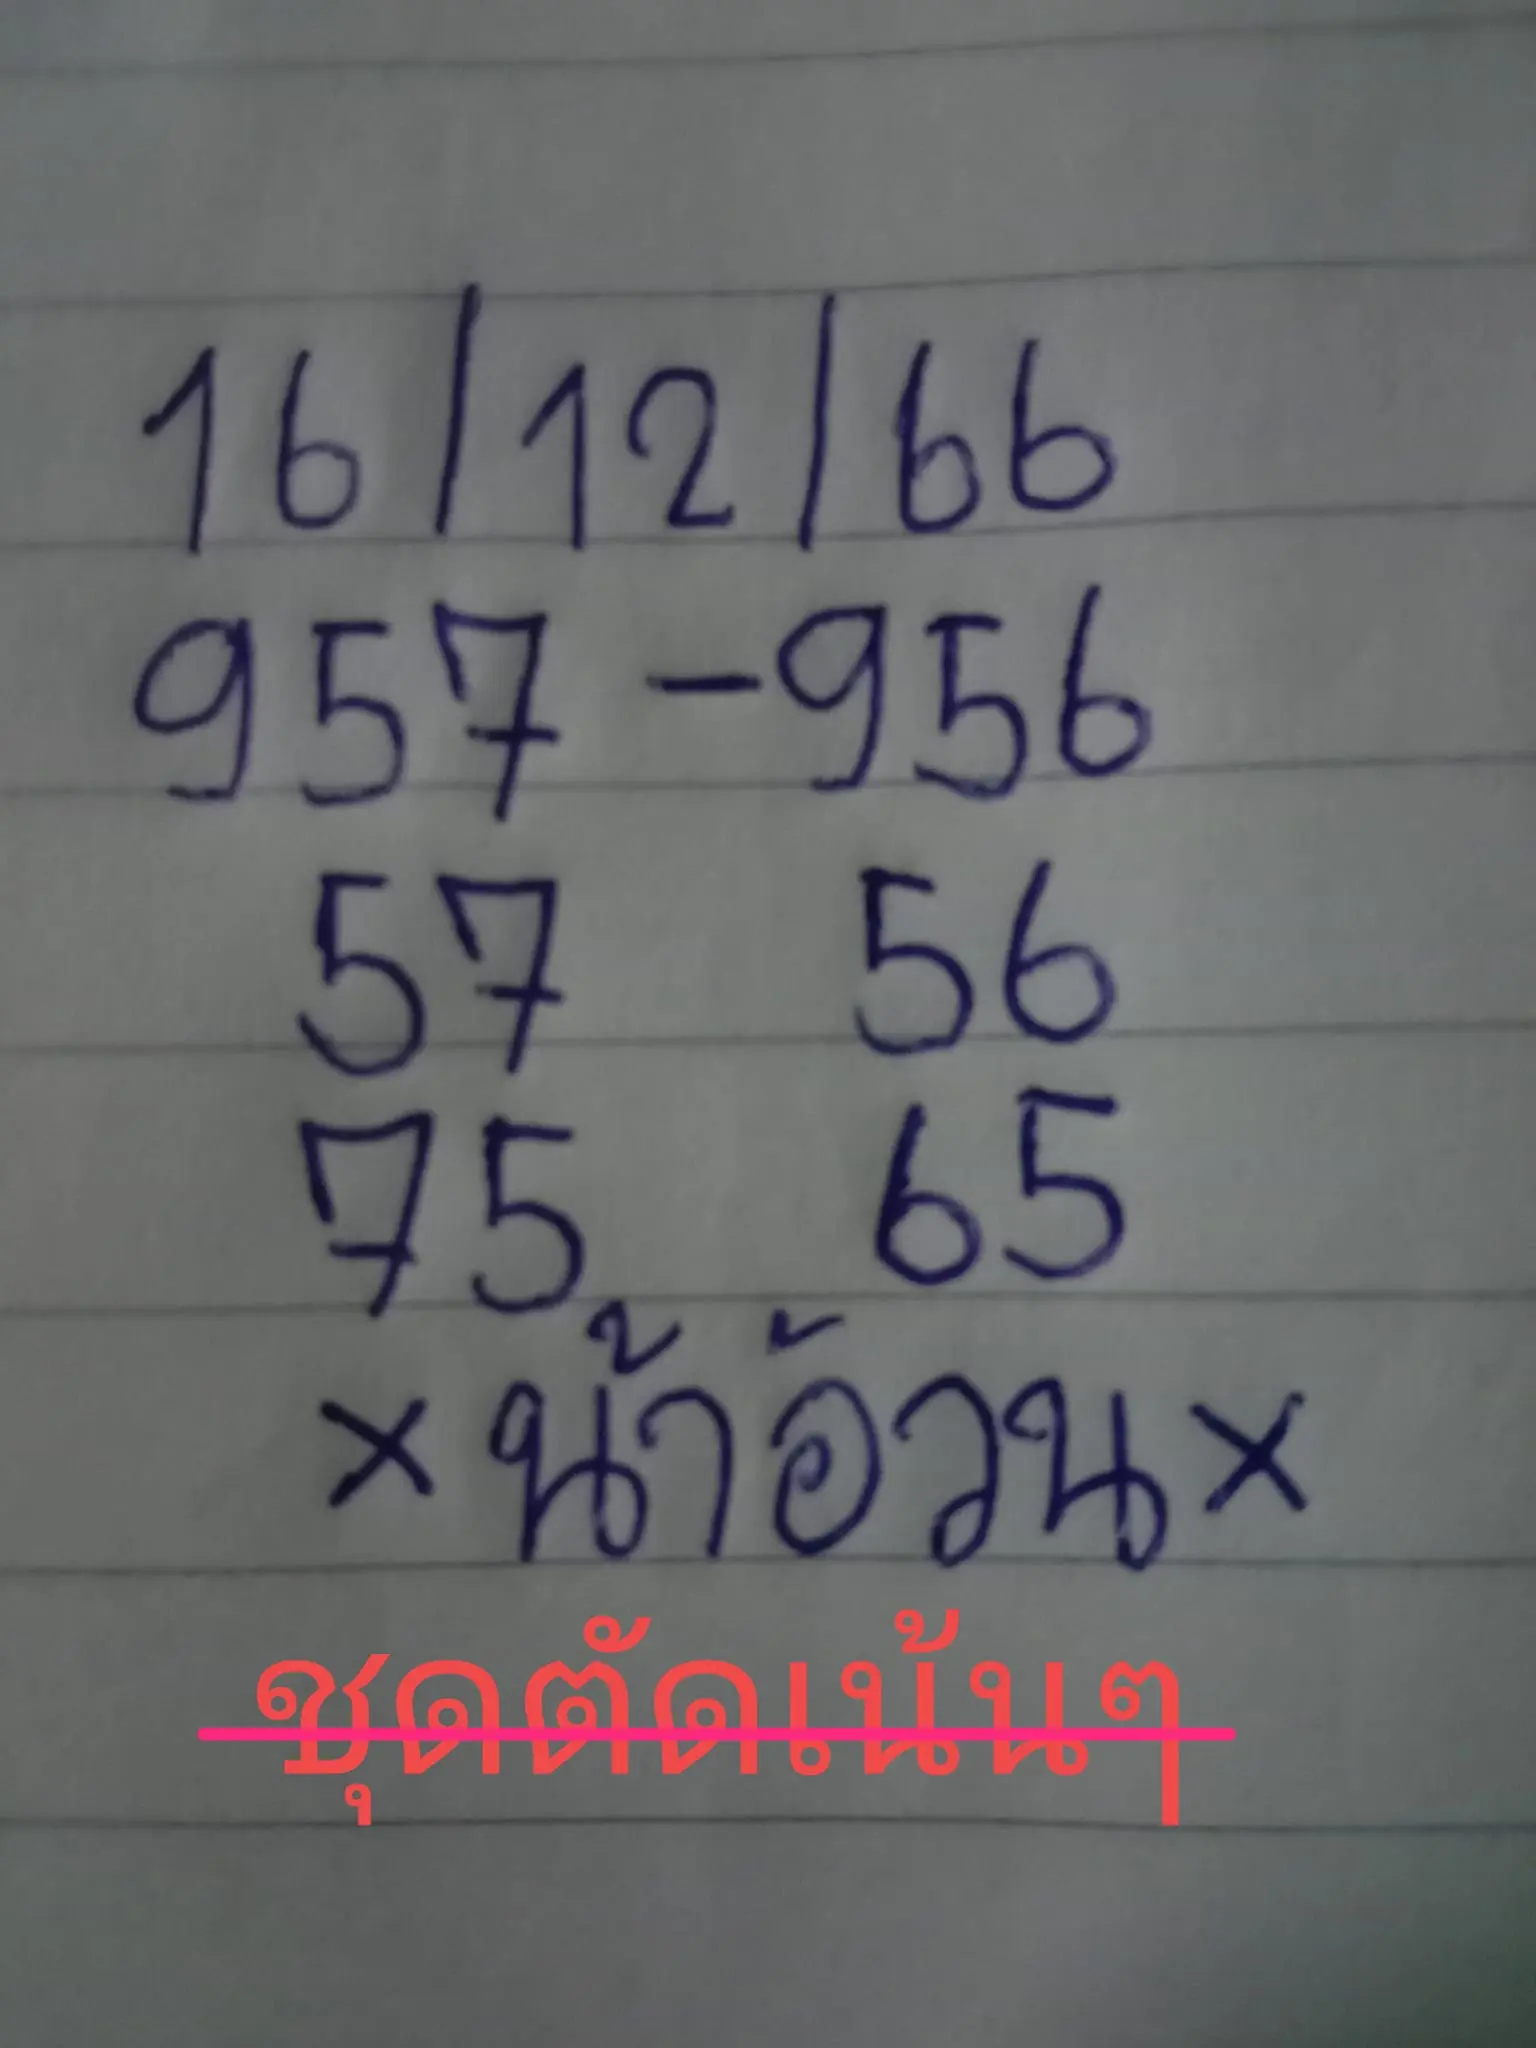 16/12/66
957-956
57 56
75 65
×น้าอ้วน×
ชุดตัดเน้นๆ